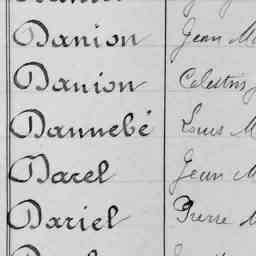 Danion Jean M
Danion Celestin
Dannebé Louis M
Darel Jean M
Dariel Pierre M